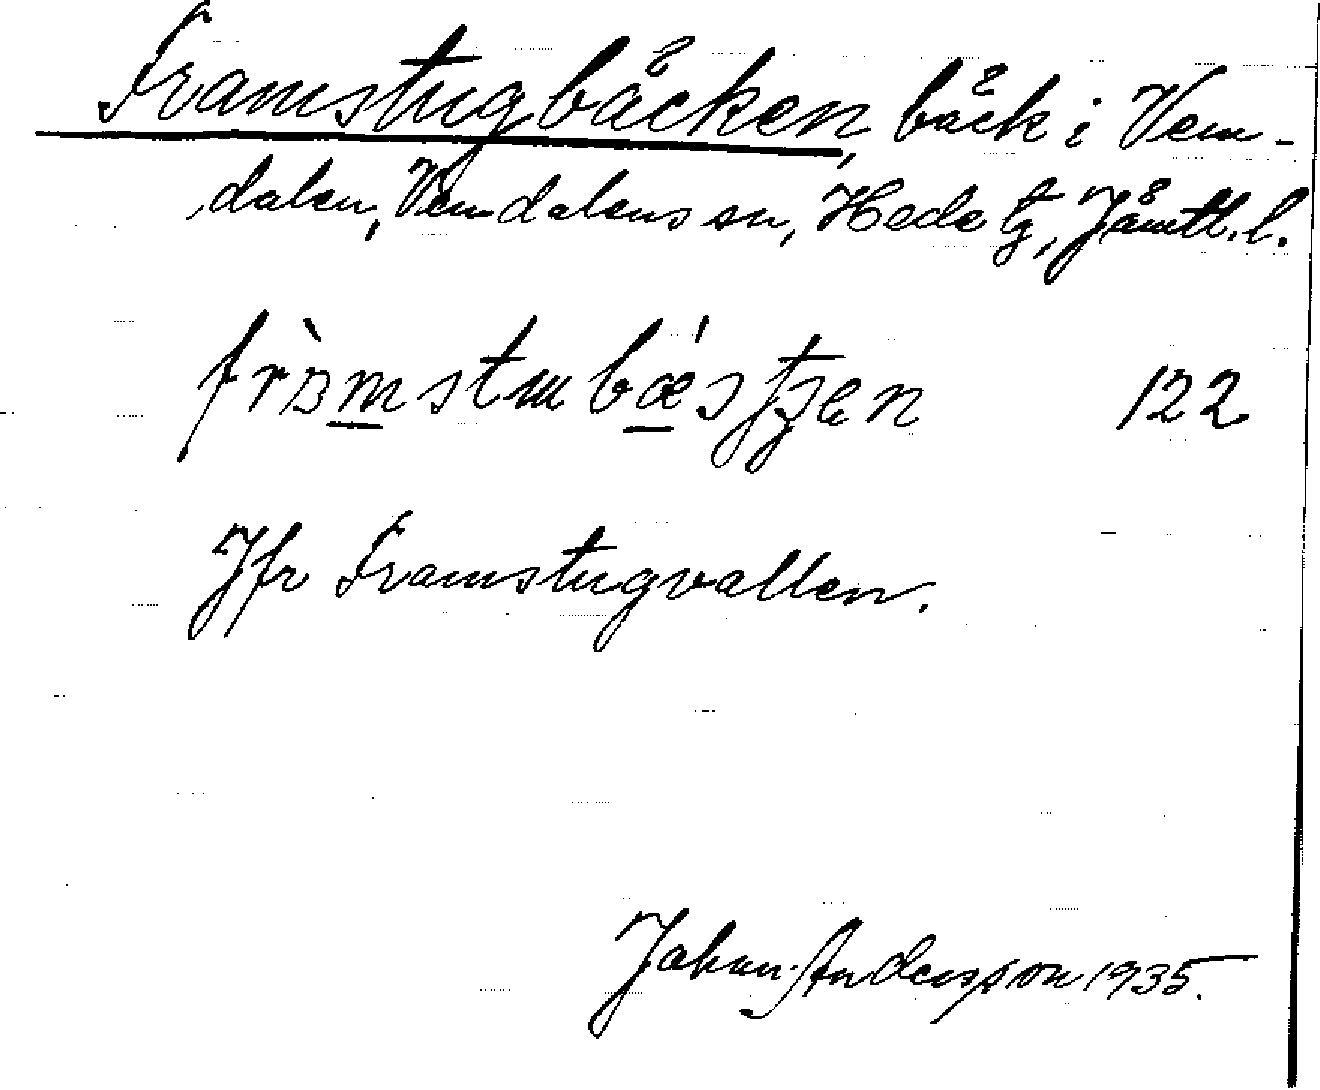 Framstugbäcken, bäck i Vem-
dalen, Vemdalens sn, Hede tg, Jämtl. l.
122
Jfr Framstugvallen.
Johan Andersson 1935.